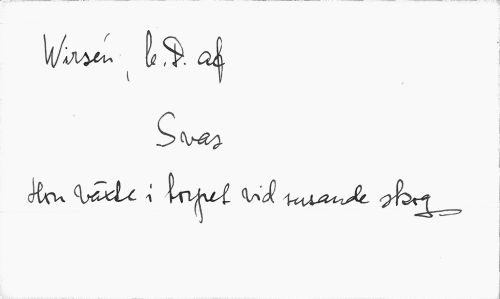 Wirsén, C. D. af
Svas
Hon växte i torpet vid susande skog